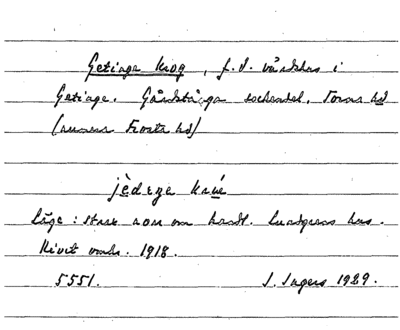 Getinge krog, f.d. värdshus i
Getinge. Gårdstånga sockendel, Torna hd
(annars Frosta hd)
jèdeŋe krué
Läge: strax norr om handl. Lundgrens hus.
Rivet omkr. 1918.
5551. J. Ingers 1929.